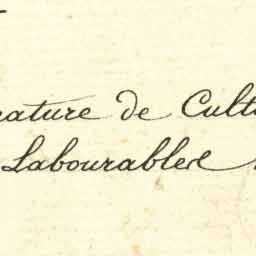 nature de Cult
Labourables